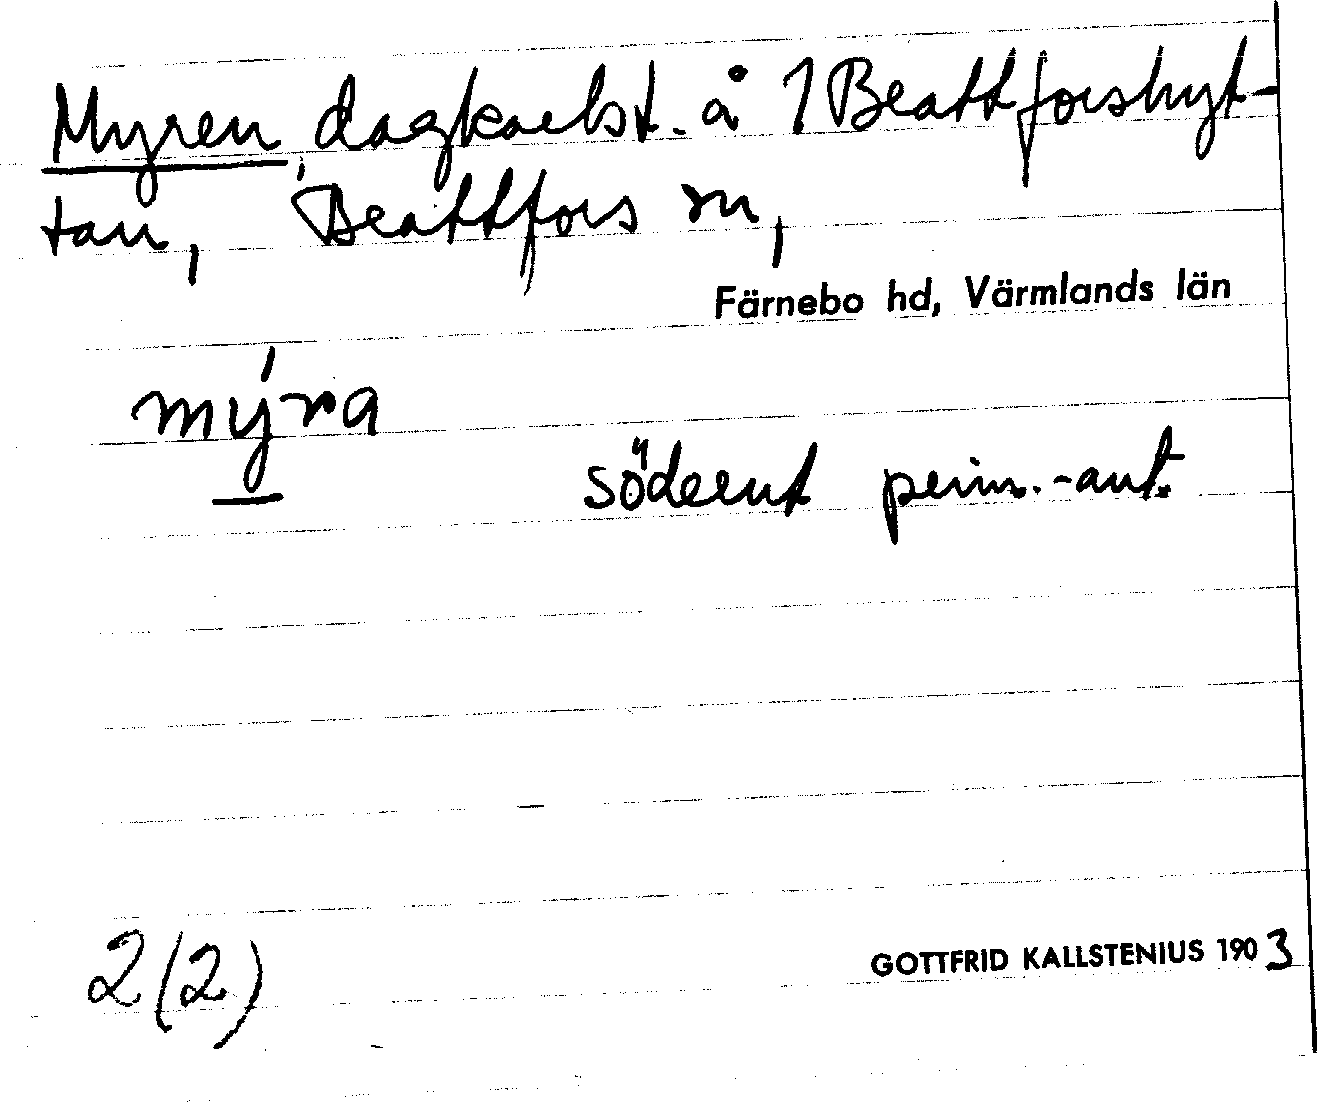 Myren, dagkarlst. å 1 Brattforshyt-
tan, Brattfors sn,
Färnebo hd, Värmlands län
mýra
söderut prim.-ant.
2(2)
GOTTFRID KALLSTENIUS 1903